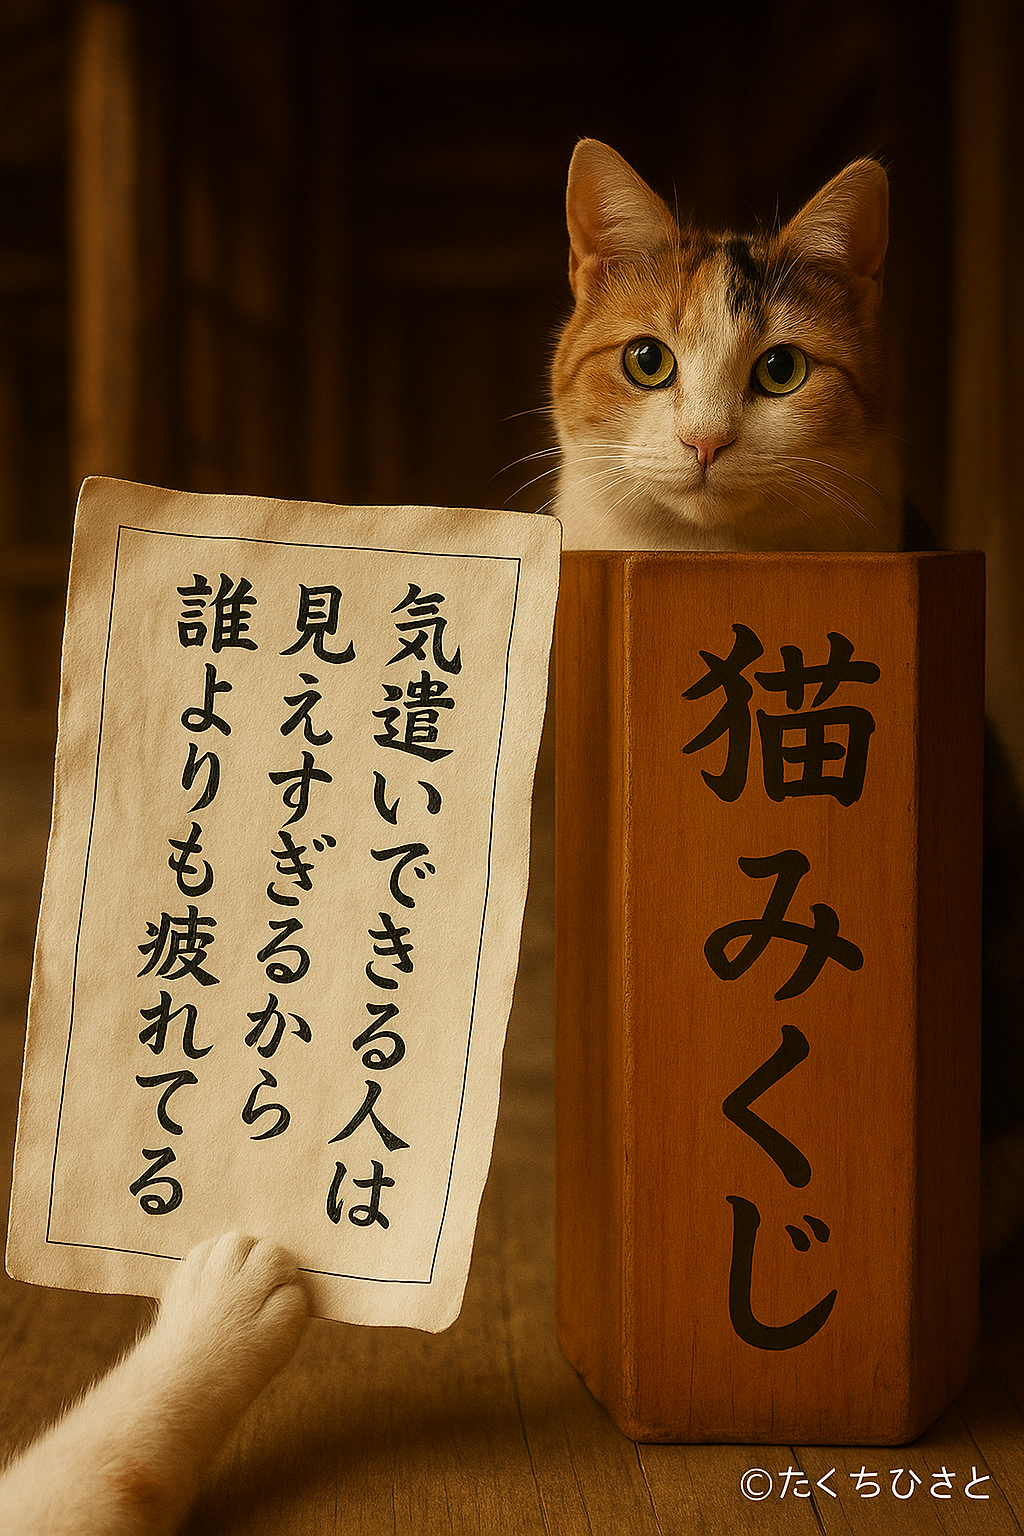 気遣いできる人は
見えすぎるから
誰よりも疲れてる
猫みくじ
©たくちひさと